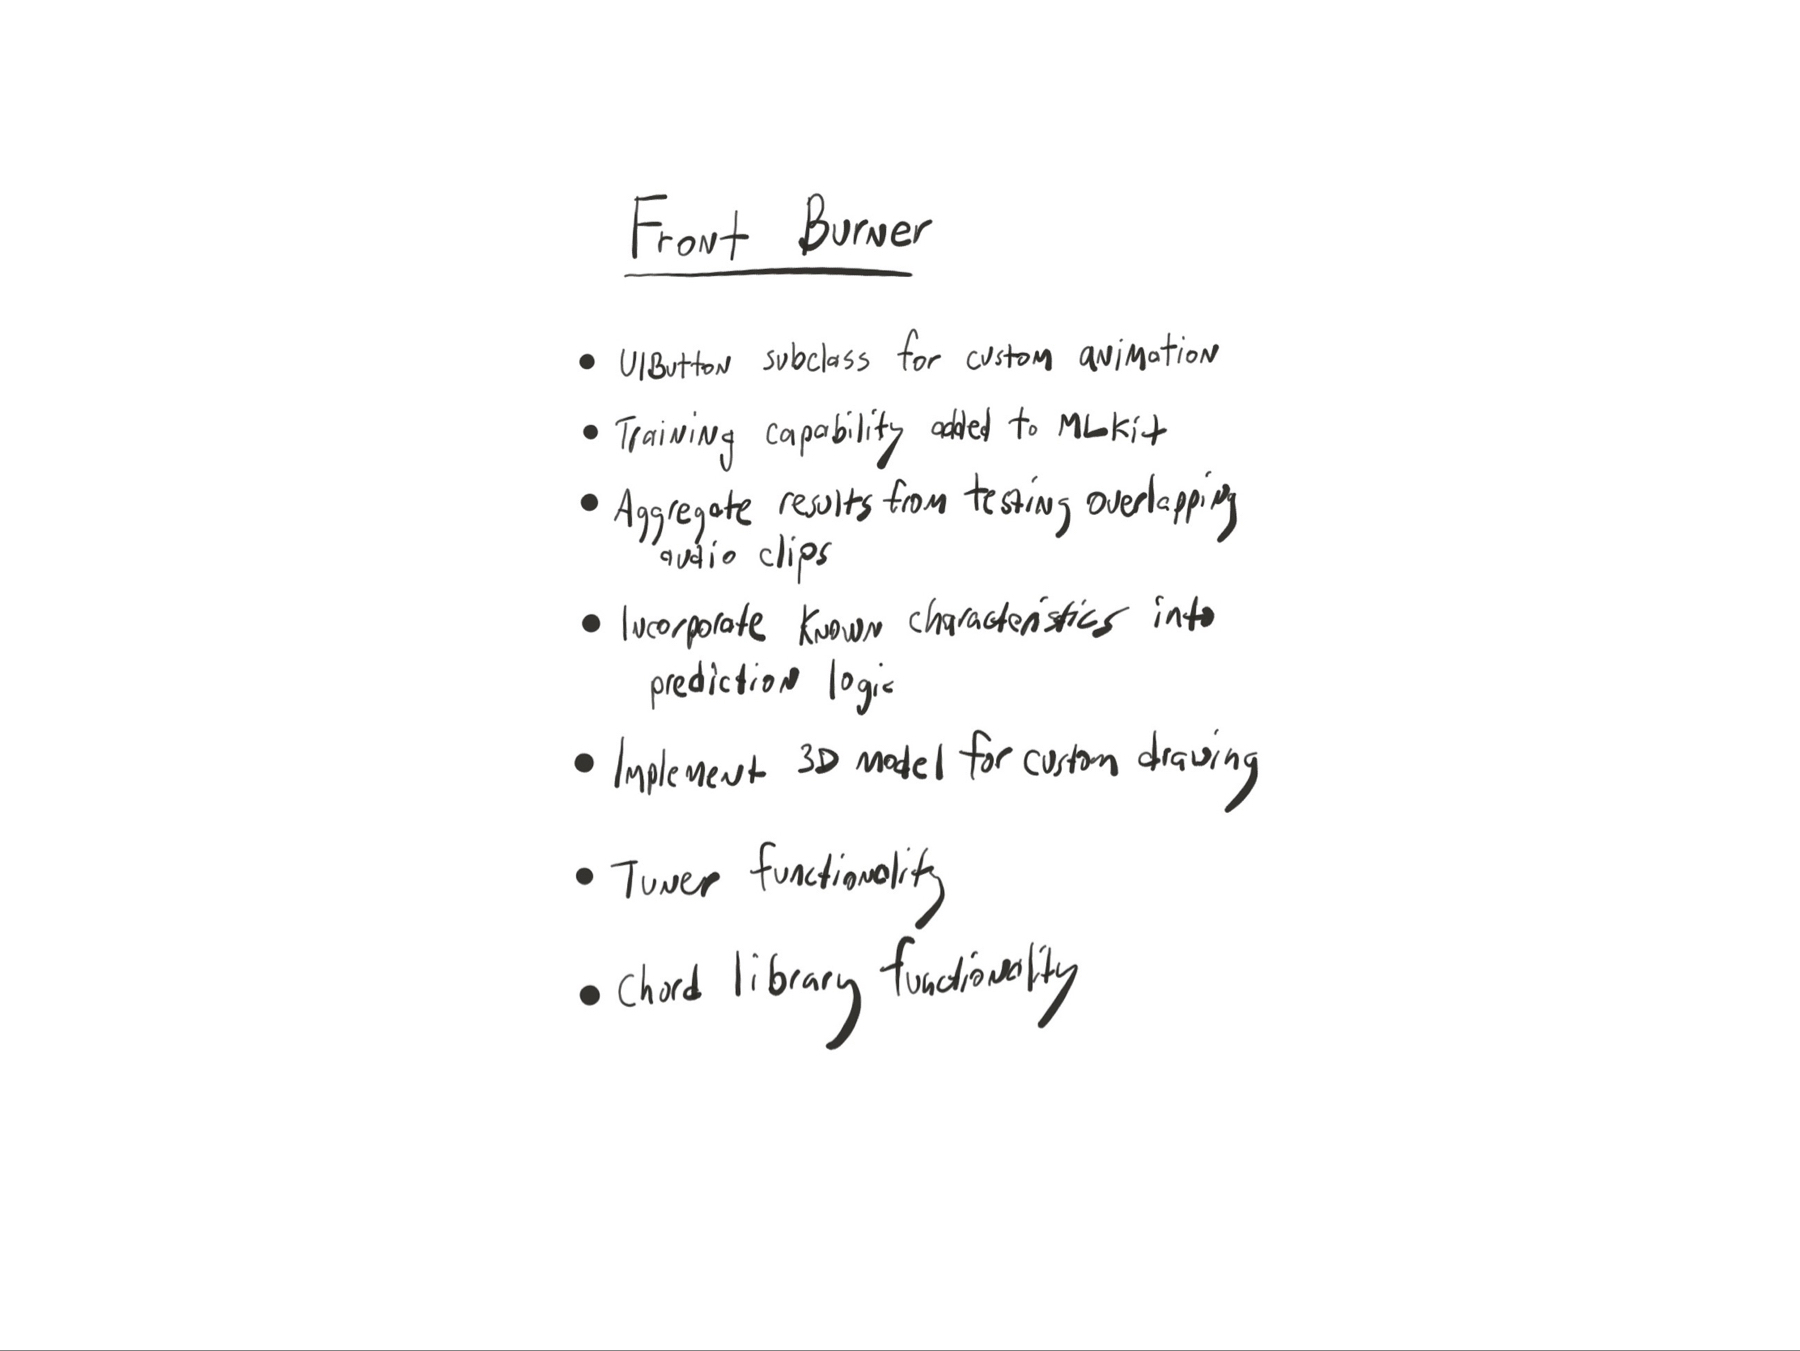 Front Burner
• UIButton subclass for custom animation
• Training capability added to MLKit
• Aggregate results from testing overlapping
audio clips
• Incorporate known characteristics into
prediction logic
• Implement 3D model for custom drawing
• Tuner functionality
• Chord library functionality